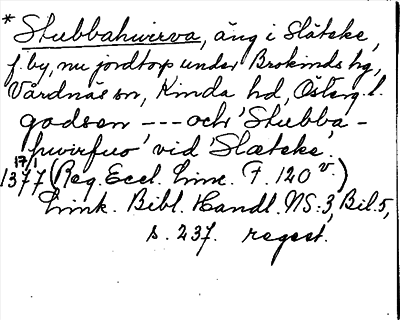 * Stubbahvirva, äng i Slätske,
f. by, nu jordtorp under Brokinds hg,
Vårdnäs sn, Kinda hd, Österg. l.
godsen --- och 'Stubba-
hwirfuo' vid 'Slætske'.
17/1
1377 (Reg. Eccl. Linc. F. 120 v.)
Link. Bibl. Handl. NS: 3, Bil. 5,
s. 237. regest.